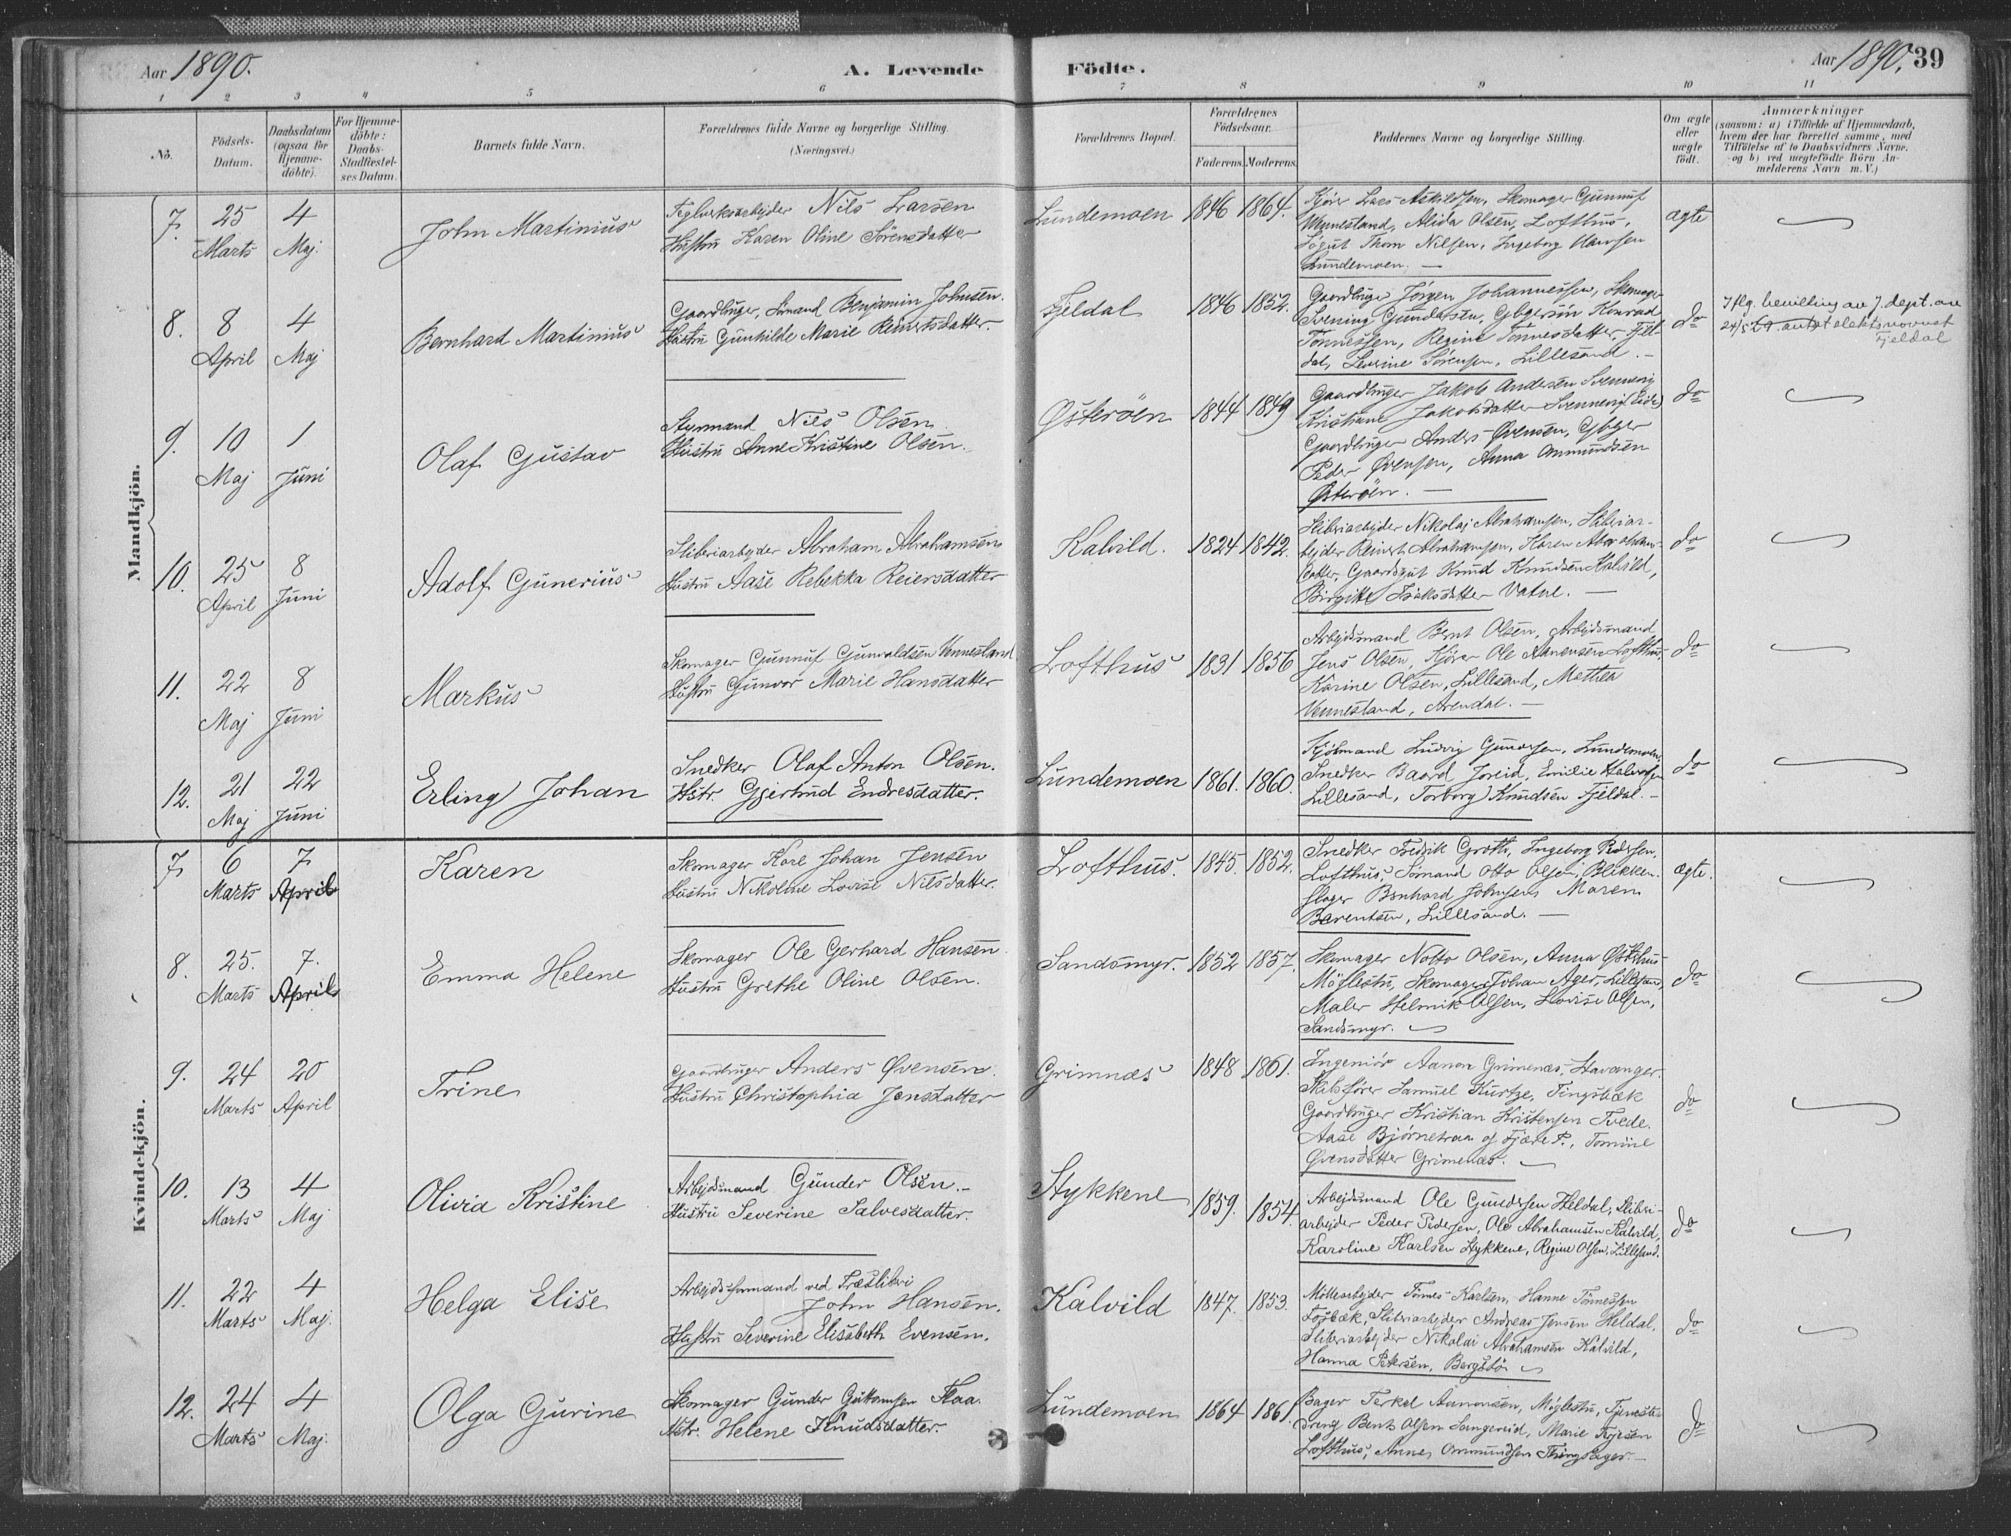 Aar 1890. A. Levende Födte. Aar 1890. 39
1 2 3 4 5 6 7 8 9 10 11
No. Födsels-Datum. Daabsdatum (ogsaa for Hjemme-döbte). For Hjemme-döbte: Daabs-Stadfæstel-ses Datum. Barnets fulde Navn. Forældrenes fulde Navne og borgerlige Stilling. (Næringsvei.) Forældrenes Bopæl. Forældrenes Födselsaar. Faderens. Moderens. Faddernes Navne og borgerlige Stilling. Om ægte eller uægte födt. Anmærkninger (saasom: a) i Tilfælde af Hjemmedaab, hvem der har forrettet samme, med Tilföielse af to Daabsvidners Navne. og b) ved uægtefödte Börn An-melderens Navn m. V.)
Mandkjön.
7. 25 Marts 4 Maj.
John Martinius
Teglverksarbejder Nils Larsen
Hustru Karen Oline Sörensdatter
Lundemoen 1846 1864.
Kjører Lars Askildsen, Skomager Gunnuf
Vennesland, Alida Olsen, Lofthus,
Thom Nilsen, Ingeborg Hansen
Lundemoen. —
ægte
8. 8 April 4 Maj
Bernhard Martinius
Gaardbruger, Sömand Benjamin Johnsen.
Hustru Gunhilde Marie Reinertsdatter.
Fjeldal 1846 1852.
Gaardbruger Jörgen Johannessen, Skomager
Svening Gundersen, Gbgersøn Konrad
Tönnessen, Regine Tönnesdatter, Fjel-
dal, Severine Sörensen, Lillesand. —
do
Iflg. bevilling av J. dept. av
24/5 antat slektsnavnet
Fjeldal
9. 10 Maj 1 Juni
Olaf Gustav
Styrmand Nils Olsen
Hustru Anne Kristine Olsen.
Østerøen 1844 1849
Gaardbruger Jakob Andersen Svennevig
Kristiane Jakobsdatter Svennevig (Eide)
Gaardbruger Anders Øvensen, Gbger
Peder Øvensen, Anna Ommundsen
Østerøen. —
do
10. 25 April 8 Juni
Adolf Gunerius
Sliberiarbejder Abraham Abrahamsen
Hustru Aase Rebekka Reiersdatter
Kalvild. 1824 1842.
Sliberiarbejder Nikolaj Abrahamsen, Sliberiar-
bejder Reinert Abrahamsen, Karen Abrahams-
datter, Gaardsgut Knud Knudsen Kalvild,
Birgitte Isaksdatter Vatne. —
do
11. 22 Maj 8 Juni
Markus
Skomager Gunnuf Gunvaldsen Vennesland
Hustru Gunvor Marie Hansdatter
Lofthus 1831 1856
Arbejdsmand Bernt Olsen, Arbejdsmand
Jens Olsen, Kjører Ole Aanensen Lofthus,
Karine Olsen, Lillesand, Mathea
Vennesland, Arendal. —
do
12. 21 Maj 22 Juni
Erling Johan
Snedker Olaf Anton Olsen.
Hstr. Gjertrud Endresdatter.
Lundemoen 1861. 1860.
Kjöbmand Ludvig Gundersen, Lundemoen,
Snedker Baard Joreid, Emilie Halvorsen
Lillesand, Torborg Knudsen Fjeldal. —
do
Kvindekjön.
7 6 Marts 7 April
Karen
Skomager Kare Johan Jensen
Hustru Nikoline Lovise Nilsdatter.
Lofthus. 1845. 1852.
Snedker Fredrik Groth, Ingeborg Pedersen,
Lofthus, Sömand Otto Olsen, Blikken-
slager Bernhard Johnsen, Maren
Berentsen, Lillesand. —
ægte.
8. 25. Marts 7. April
Emma Helene
Skomager Ole Gerhard Hansen.
Hustru Grethe Oline Olsen.
Sandsmyr. 1852 1857.
Skomager Notto Olsen, Anna Østhus
Möglestu, Skomager Johan Ager, Lillesand,
Maler Helmik Olsen, Lovise Olsen,
Sandsmyr.
do
9. 24 Marts 20 April
Trine
Gaardbruger Anders Øvensen.
Hustru Christophia Jensdatter
Grimnæs 1848 1861.
Ingeniör Aanon Grimenæs, Stavanger.
Skibsförer Samuel Kurtze, Tingsbæk
Gaardbruger Kristian Kristensen Tvede.
Aase Björnetraa af Fjære P., Tomine
Øvensdatter Grimenæs.
do
10. 13 Marts 4 Maj
Olivia Kristine
Arbejdsmand Gunder Olsen. -
Hustru Severine Salvesdatter.
Stykkene 1859. 1854.
Arbejdsmand Ole Gundersen Heldal, Sliberi-
arbejder Peder Pedersen, Ole Abrahamsen Kalvild,
Karoline Karlsen Stykkene, Regine Olsen, Lillesand.
do
11. 22 Marts 4 Maj.
Helga Elise
Arbejdsformand ved Træsliberi
John Hansen.
Hustru Severine Elisabeth Evensen.
Kalvild 1847. 1853.
Möllearbejder Tönnes Karlsen, Hanne Tönnessen
Fosbæk, Sliberiarbejder Andreas Jensen Heldal.
Sliberiarbejder Nikolai Abrahamsen Kalvild,
Hanna Petersen, Bergstö
do
12. 24 Marts 4 Maj.
Olga Gurine
Skomager Gunder Guttormsen Flaa.
Hstr. Helene Knudsdatter.
Lundemoen 1864 1861.
Bager Terkel Aanonsen, Möglestu, Tjeneste-
dreng Bent Olsen Sangereid, Marie
Lofthus, Anne Ommundsen Thingsager. —
do